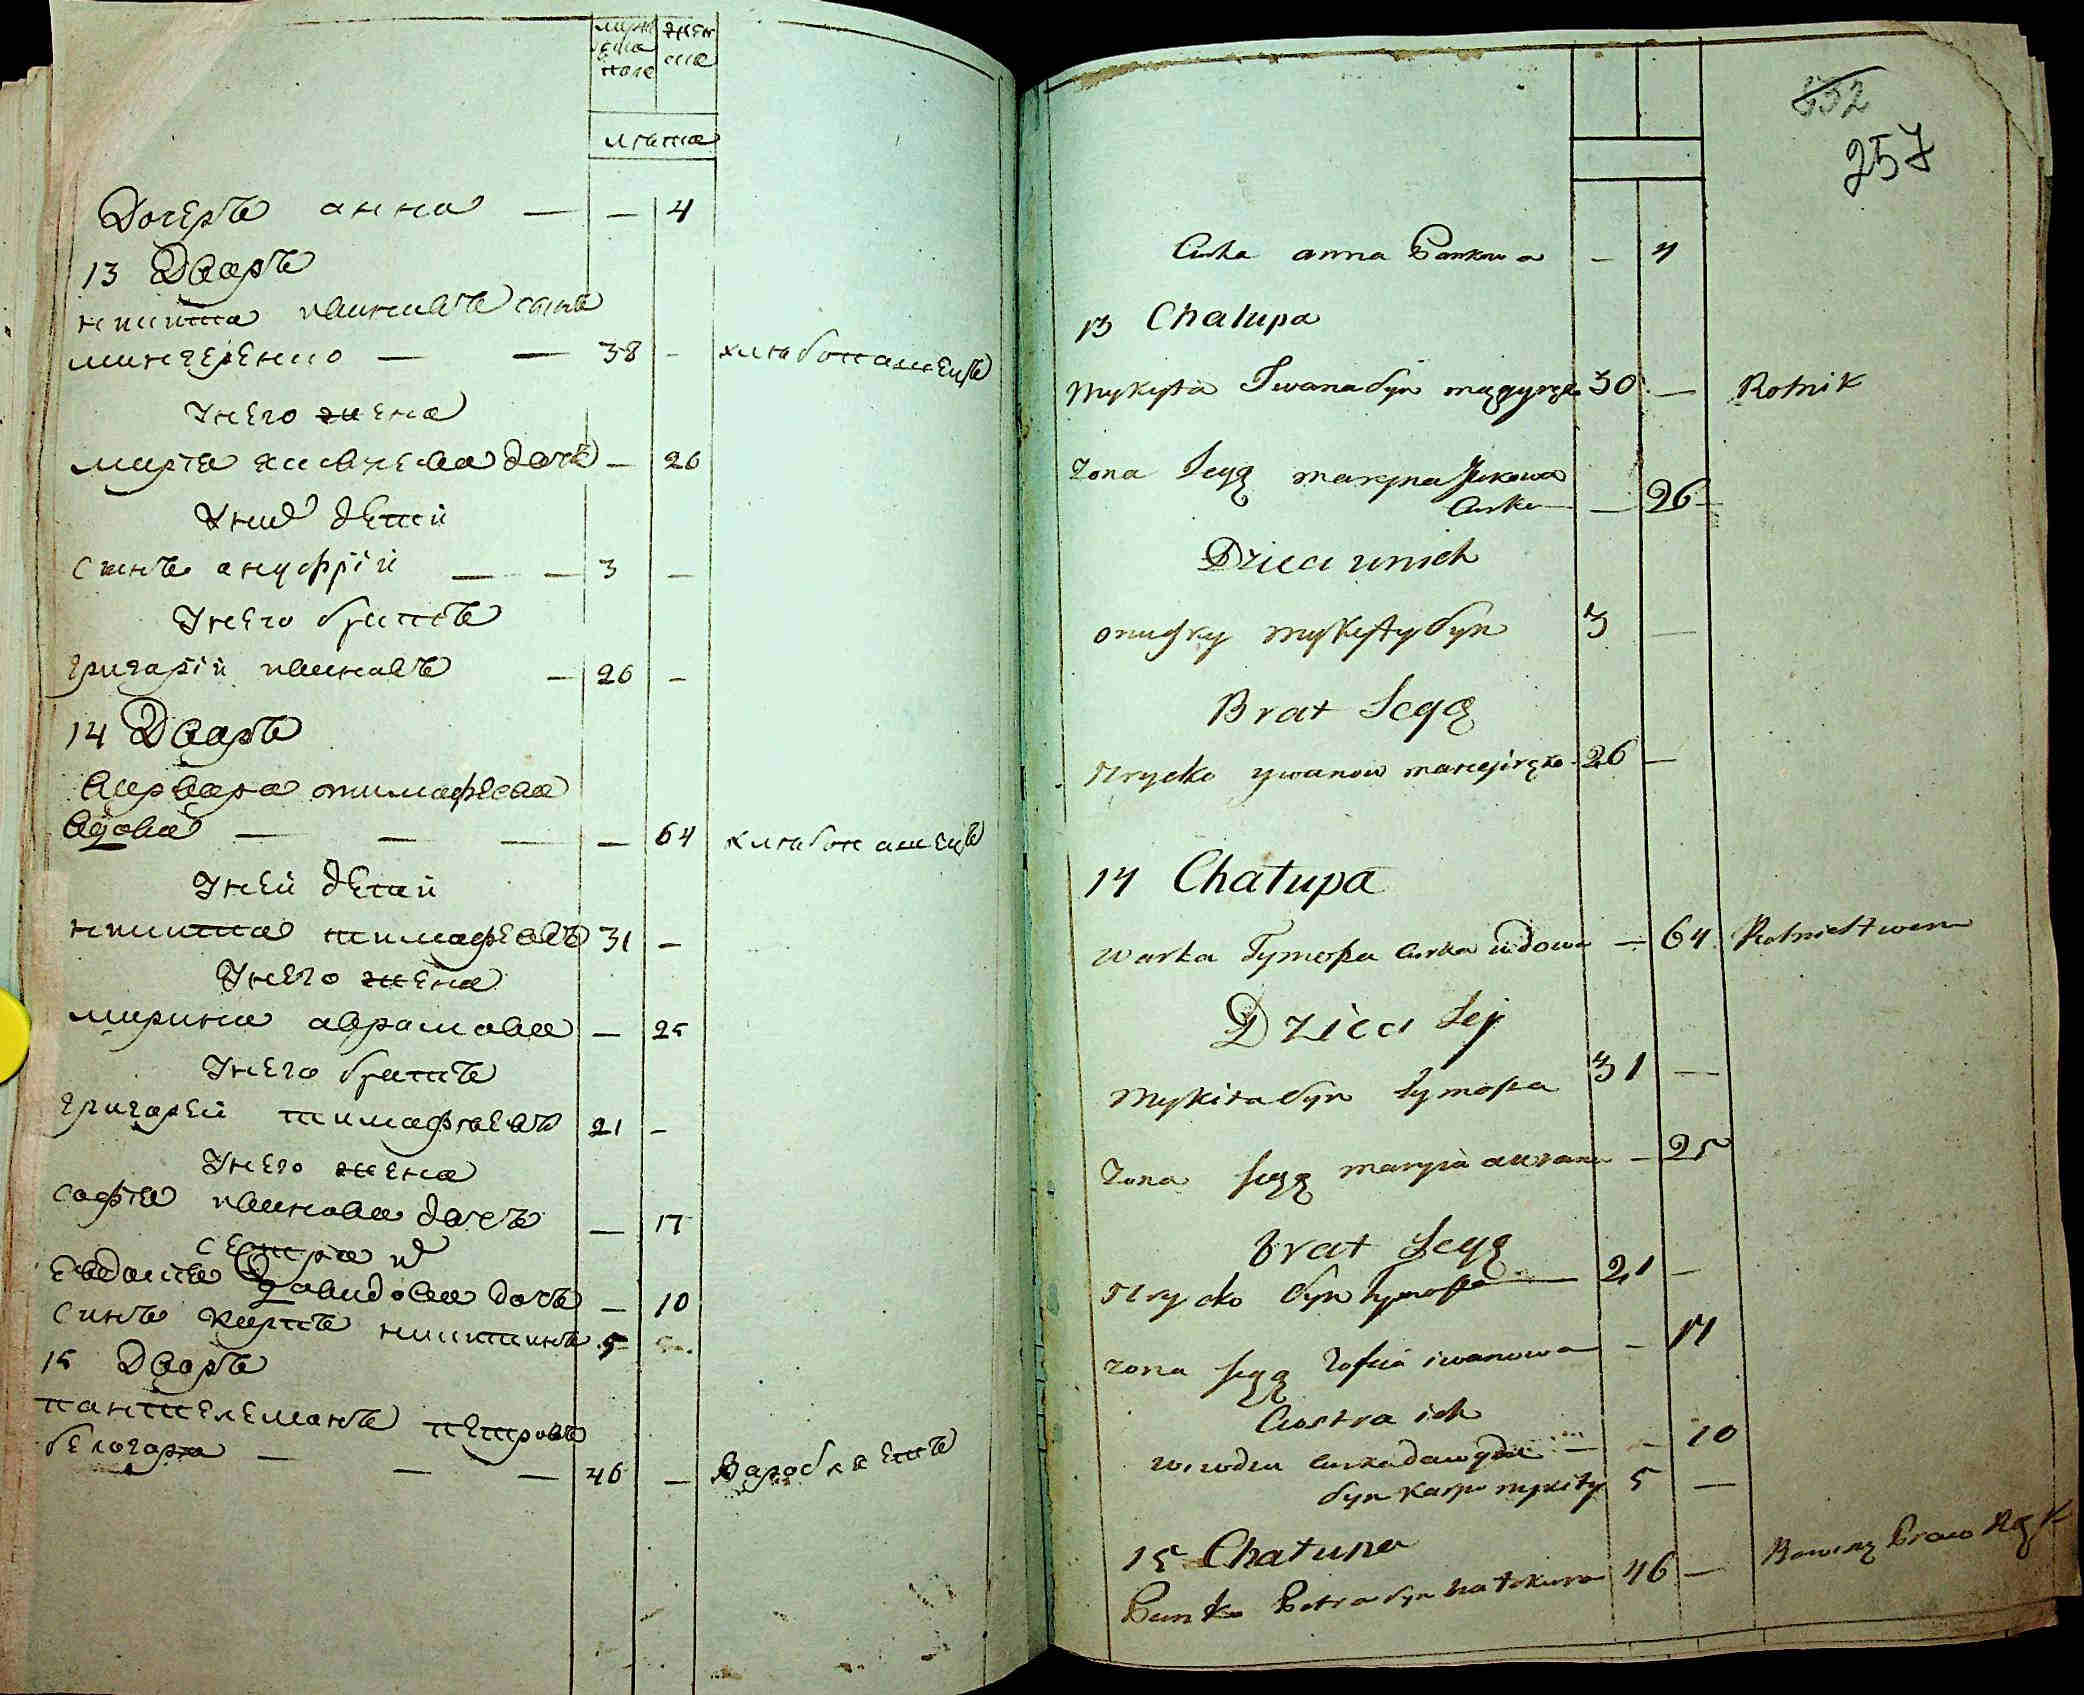 мужеска пола
женска
лѣта
Дочеръ анна — — 4
13 Дворъ
никита ивановъ сынъ
— — 38 — хлѣбопашецъ
Унего жена
дочь — 26
Уних детей
сынъ ануфрїй — — 3 —
Унего братъ
григорїй ивановъ — 26 —
14 Дворъ
варвара тимофѣева
вдова — — — — 64 хлѣбопашецъ
Уней детей
никита тимофѣевъ 31 —
Унего жена
марина аврамова — 25
Унего братъ
григорей тимофѣевъ 21 —
Унего жена
софїя иванова дочь — 17
сестра их
евдокїя давидова дочь — 10
синъ карпъ никитинъ 5
15 Дворъ
пантелемонъ петровъ
— — — 46 —
252
257
Curka anna Pankowa — 4
13 Chałupa
Mykyta Iwana Syn 30 — Rolnik
Zona Iegą maryna
Curka — 26
Dzieci unich
onufry mykyty Syn 3 —
Brat Iegą
Hrycko ywanow 26 —
14 Chałupa
Warka Tymofia Curka wdowa — 64 Rolnictwem
Dzieci Iej
Mykita Syn tymofia 31 —
Zona Iegą — 25
Brat Iegą
Hrycko Syn tymofia 21 —
zona Iegą Zofia iwanowa — 17
Ciostra ich
Curka dawyda — — 10
Syn Karpo mykity 5 —
15 Chałupa
Panko Petra Syn 46 —